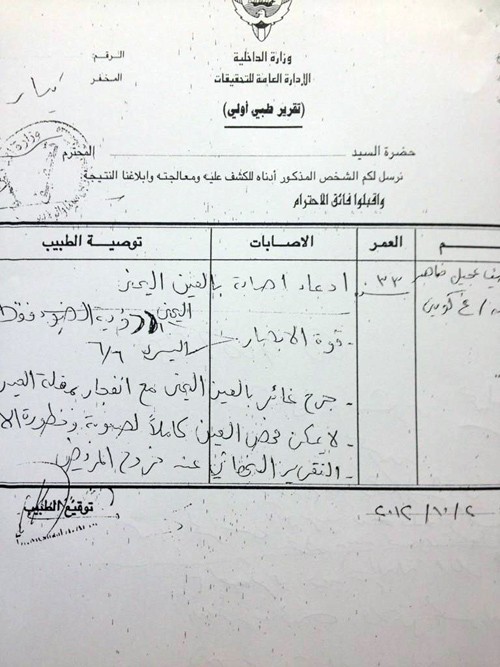 وزارة الداخلية
الإدارة العامة للتحقيقات
الرقم:
المخفر
(تقرير طبي أولي)
حضرة السيد المحترم
نرسل لكم الشخص المذكور أدناه للكشف عليه ومعالجته وابلاغنا النتيجة
واقبلوا فائق الاحترام
م العمر الاصابات توصية الطبيب
٣٣ ادعاء اصابة بالعين اليمنى
سنة
قوة الابصار. اليمنى رؤية الضوء فقط
اليسرى ٦/٦
- جرح غائر بالعين اليمنى مع انفجار بمقلة العين
- لا يمكن فحص العين كاملاً لصعوبة وخطورة الا
- التقرير النهائي عند خروج المريض
توقيع الطبيب
٢٠١٢/١٠/٢